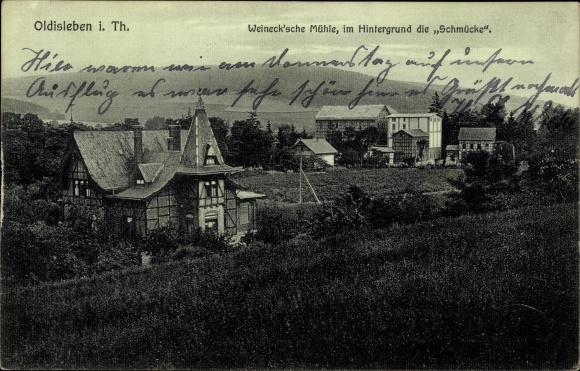 Oldisleben i. Th.
Weineck'sche Mühle, im Hintergrund die „Schmücke“.
Hier waren wir am Donnerstag auf unsern
Ausflug, es war sehr schön hier es grüßt nochmals